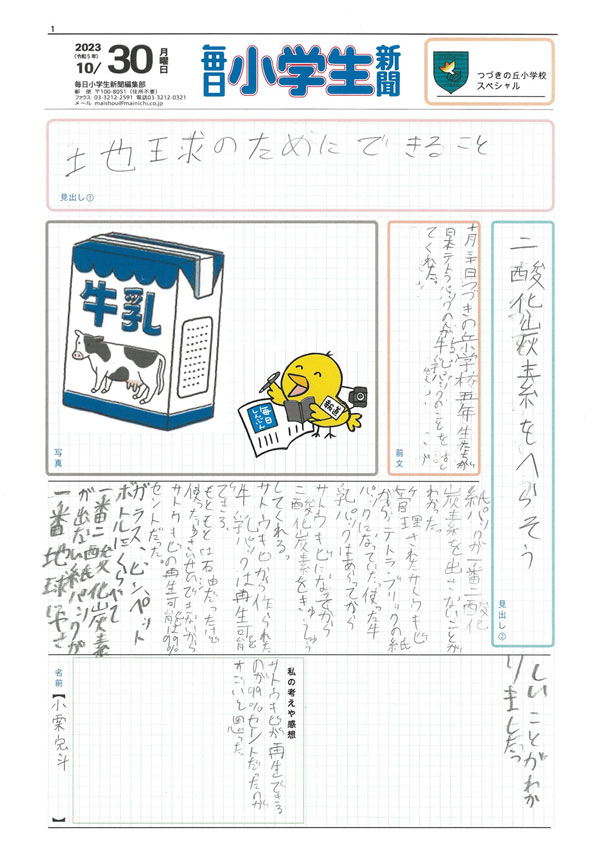 1
2023
(令和5年)
10/30 月曜日
毎日小学生新聞編集部
郵 便 〒100-8051(住所不要)
ファクス 03-3212-2591 電話03-3212-0321
メール maishou@mainichi.co.jp
毎日小学生新聞
つづきの丘小学校
スペシャル
土地王求のためにできること
見出し①
二酸化炭素をへらそう
見出し②
十月三十日つづきの丘小学校五年生
日本テトラパック
てくれた。
前文
牛乳
毎日しんぶん
新聞
写真
紙パックが一番二酸化
炭素を出さないことが
わかった。
管理されたサトウキビ
から、テトラ・ブリックの紙
パックになっていた。使った牛
乳パックはあらってから
サトウキビになってから
二酸化炭素をきゅうしゅう
してくれる。
サトウキビから作られた
牛乳パックは再生可能
できる。
もともとは石油だったけど
サトウキビの再生可能は99%
セントだった。
ガラス、ビン、ペット
ボトルにくらべて
一番二酸化炭素
が出ない紙パックが
一番地球にやさ
しいことがわか
りましたっ
私の考えや感想
サトウキビが再生できる
のが99%セントだったのが
すごいと思った
名前【小栗 斗】